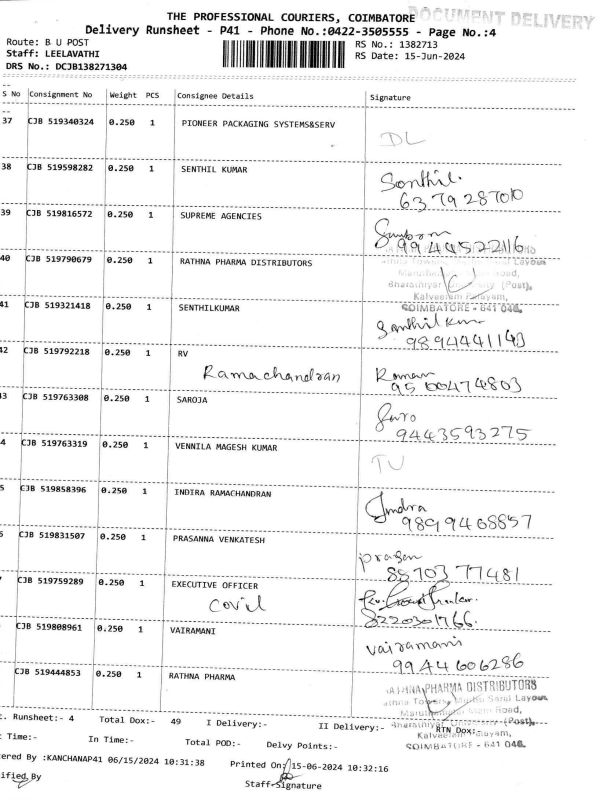 THE PROFESSIONAL COURIERS, COIMBATORE
DOCUMENT DELIVERY
Delivery Runsheet - P41 - Phone No.:0422-3505555 - Page No.:4
Route: B U POST
RS No.: 1382713
Staff: LEELAVATHI
RS Date: 15-Jun-2024
DRS No.: DCJB138271304
S No Consignment No Weight PCS Consignee Details Signature
37 CJB 519340324 0.250 1 PIONEER PACKAGING SYSTEMS&SERV
DL
38 CJB 519598282 0.250 1 SENTHIL KUMAR
Senthil.
6379287010
39 CJB 519816572 0.250 1 SUPREME AGENCIES
9944522116
40 CJB 519790679 0.250 1 RATHNA PHARMA DISTRIBUTORS
Layout
Road,
Bharathiyar (Post),
Kalveeram Palayam,
COIMBATORE - 641 046.
41 CJB 519321418 0.250 1 SENTHILKUMAR
Senthilkumar
42 CJB 519792218 0.250 1 RV
Ramachandran
Raman
9500474803
3 CJB 519763308 0.250 1 SAROJA
Saro
9443593275
4 CJB 519763319 0.250 1 VENNILA MAGESH KUMAR
TU
5 CJB 519858396 0.250 1 INDIRA RAMACHANDRAN
Indra
9899468857
6 CJB 519831507 0.250 1 PRASANNA VENKATESH
prasan
8870377481
CJB 519759289 0.250 1 EXECUTIVE OFFICER
covil
8220301766.
CJB 519808961 0.250 1 VAIRAMANI
vairamani
9944606286
CJB 519444853 0.250 1 RATHNA PHARMA
RATHNA PHARMA DISTRIBUTORS
Layout
Main Road,
Bharathiyar University (Post),
Kalveeram Palayam,
COIMBATORE - 641 046.
t. Runsheet:- 4 Total Dox:- 49 I Delivery:- II Delivery:- RTN Dox:-
t Time:- In Time:- Total POD:- Delvy Points:-
ered By :KANCHANAP41 06/15/2024 10:31:38 Printed On: 15-06-2024 10:32:16
ified By
Staff Signature